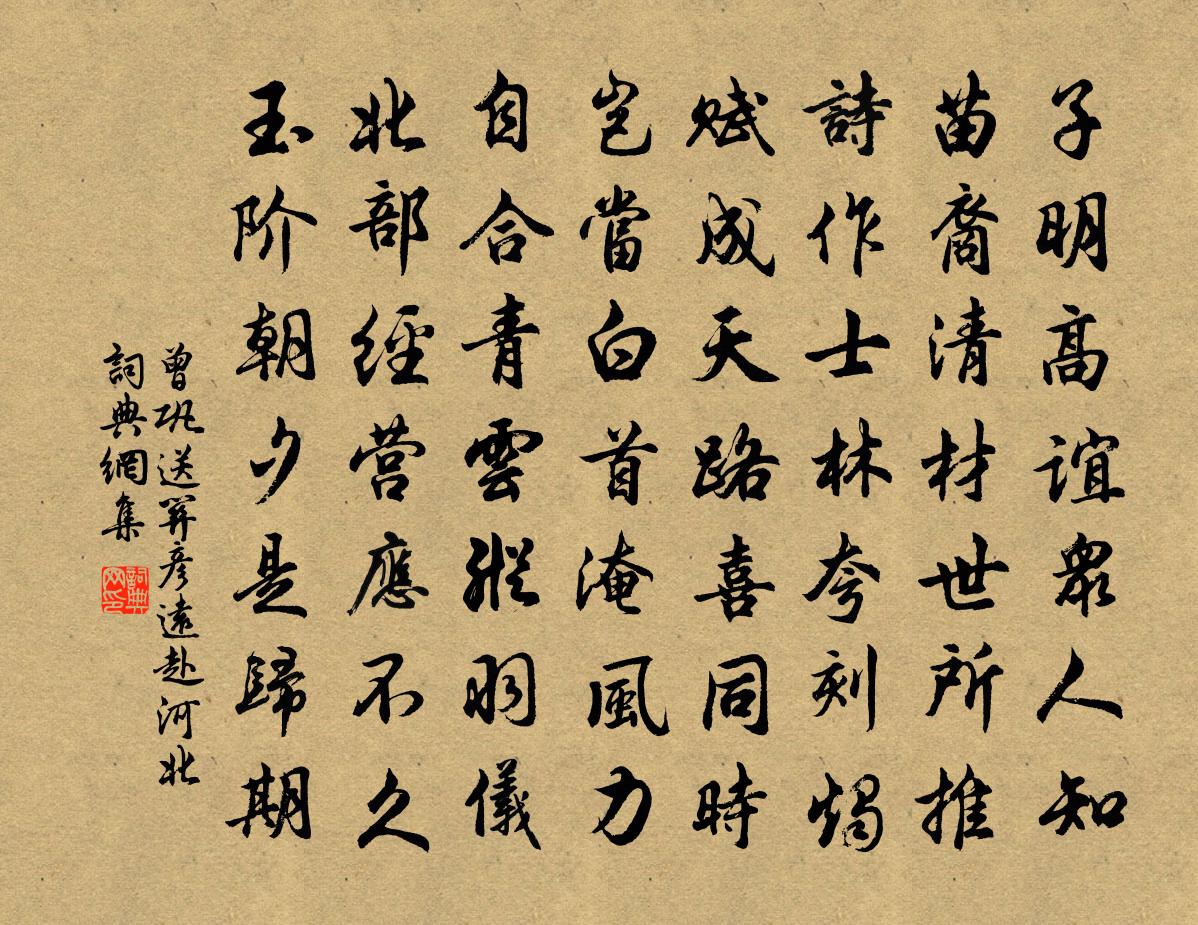 子明高誼眾人知
苗裔清材世所推
詩作士林夸刻燭
賦成天路喜同時
豈當白首淹風力
自合青雲縱羽儀
北部經营應不久
玉阶朝夕是歸期
曾巩送關彥遠赴河北
詞典網集
詞典网印